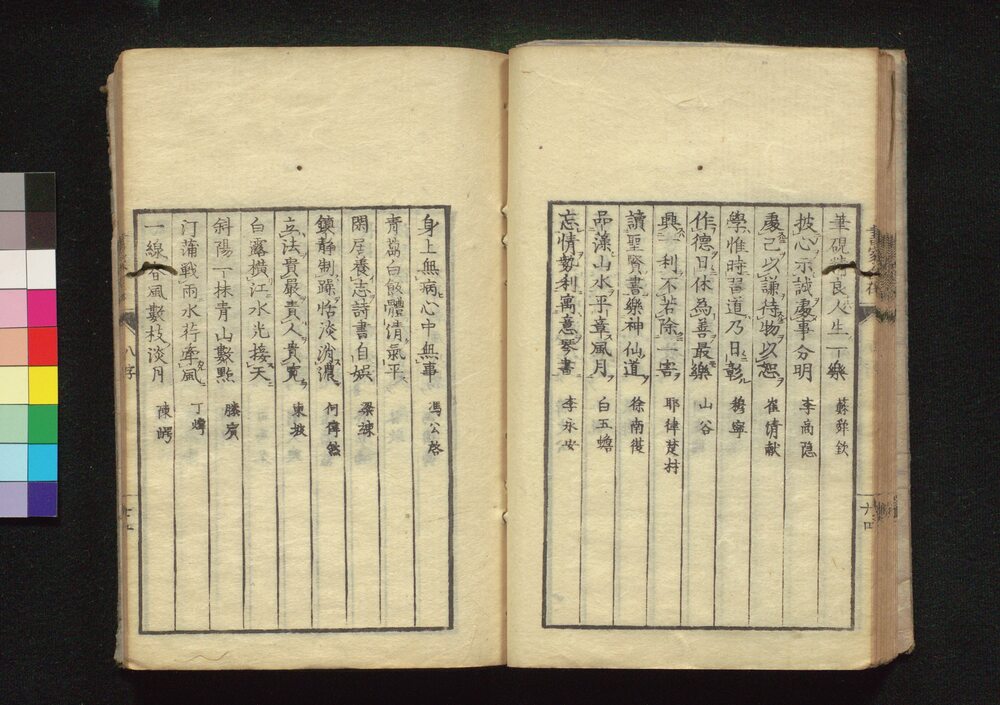 筆硯精良人生一樂 蘇舜欽
披心示誠處事分明 李商隐
處己以謙待物以恕 崔倩献
學惟時習道乃日彰 穆寧
作德日休為善最樂 山谷
興一利不若除一害 耶律楚材
讀聖賢書樂神仙道 徐南復
品藻山水平章風月 白玉蟾
忘情勢利寓意琴書 李永女
身上無病心中無事 馮公啓
青蒿白飯體倩氣平
閑居養志詩書自娯 梁竦
鎮静制躁恬淡消濃 何偉然
立法貴嚴責人貴寛 東坡
白露横江水光接天
斜陽一抹青山數點 滕賓
汀蒲戰雨水荇牽風 丁
一線春風數枝淡月 陳
八字